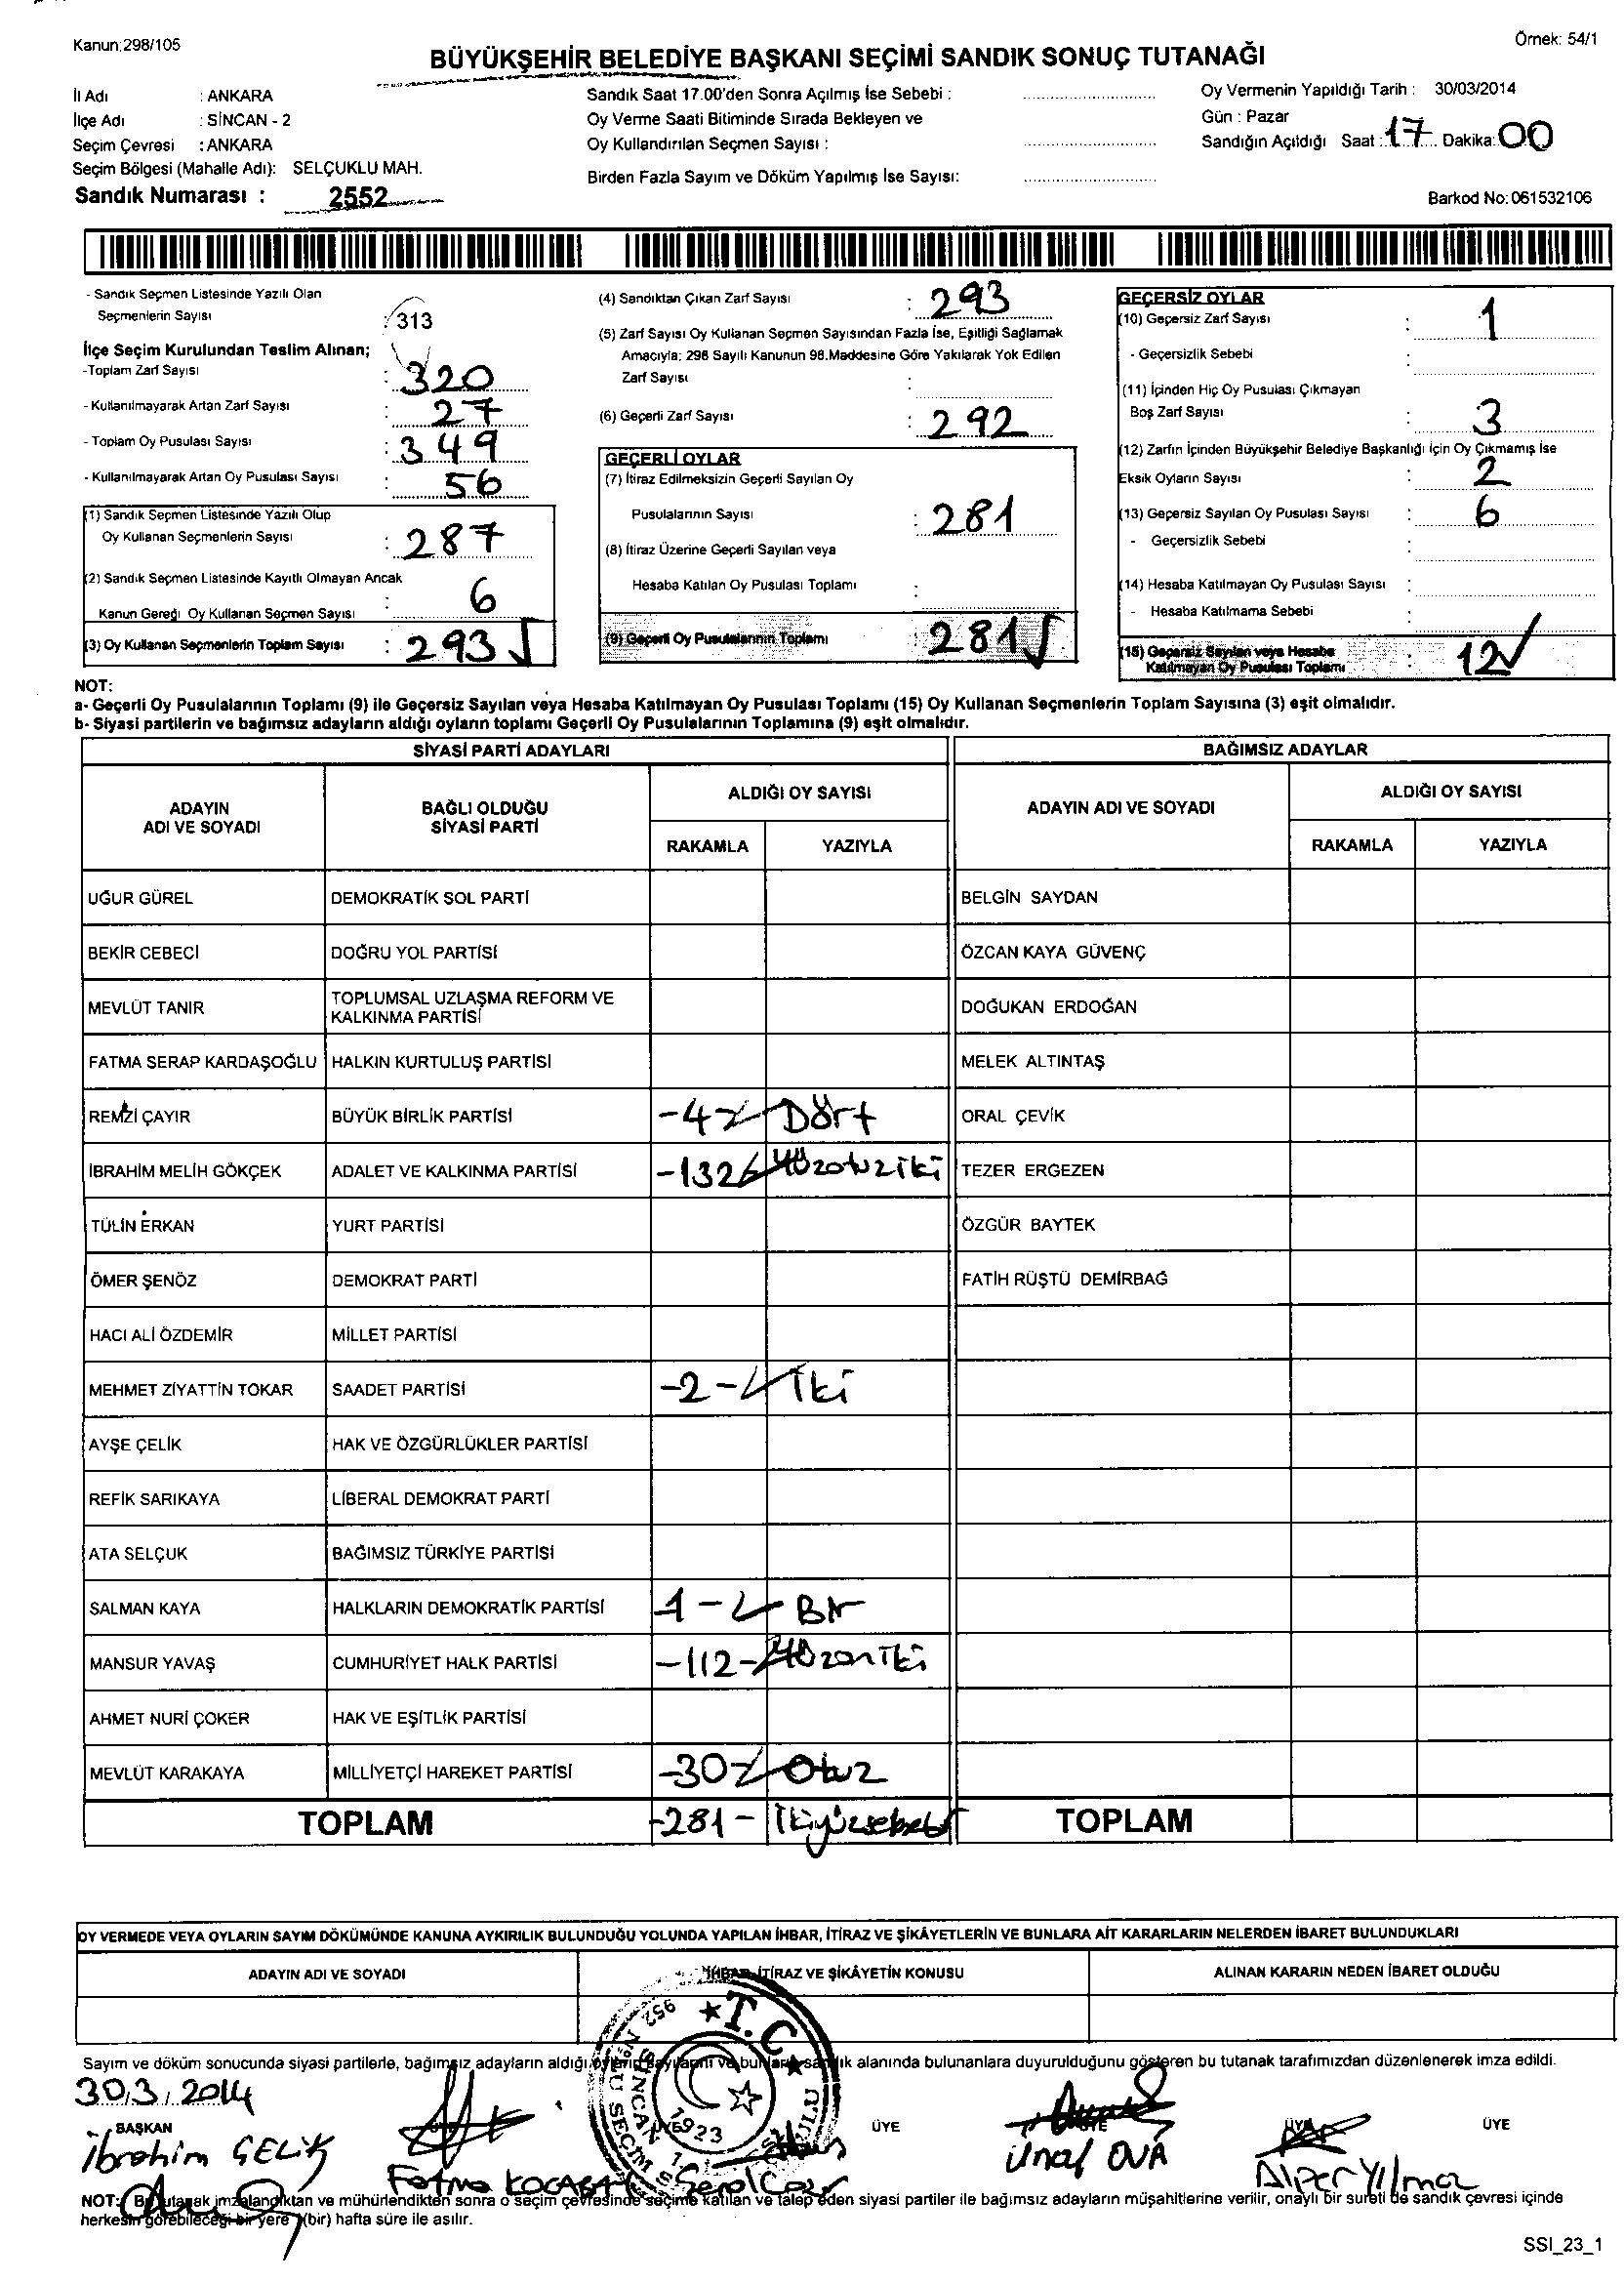 Kanun:298/105
Örnek: 54/1
BÜYÜKŞEHİR BELEDİYE BAŞKANI SEÇİMİ SANDIK SONUÇ TUTANAĞI
İl Adı : ANKARA
İlçe Adı : SİNCAN - 2
Seçim Çevresi : ANKARA
Seçim Bölgesi (Mahalle Adı): SELÇUKLU MAH.
Sandık Numarası : 2552
Sandık Saat 17.00'den Sonra Açılmış İse Sebebi :
Oy Verme Saati Bitiminde Sırada Bekleyen ve
Oy Kullandırılan Seçmen Sayısı :
Birden Fazla Sayım ve Döküm Yapılmış İse Sayısı:
Oy Vermenin Yapıldığı Tarih : 30/03/2014
Gün : Pazar
Sandığın Açıldığı Saat : 17 Dakika: 00
Barkod No: 061532106
- Sandık Seçmen Listesinde Yazılı Olan
Seçmenlerin Sayısı : 313
İlçe Seçim Kurulundan Teslim Alınan;
-Toplam Zarf Sayısı : 320
- Kullanılmayarak Artan Zarf Sayısı : 27
- Toplam Oy Pusulası Sayısı : 349
- Kullanılmayarak Artan Oy Pusulası Sayısı : 56
(1) Sandık Seçmen Listesinde Yazılı Olup
Oy Kullanan Seçmenlerin Sayısı : 287
(2) Sandık Seçmen Listesinde Kayıtlı Olmayan Ancak
Kanun Gereği Oy Kullanan Seçmen Sayısı : 6
(3) Oy Kullanan Seçmenlerin Toplam Sayısı : 293
(4) Sandıktan Çıkan Zarf Sayısı : 293
(5) Zarf Sayısı Oy Kullanan Seçmen Sayısından Fazla İse, Eşitliği Sağlamak
Amacıyla; 298 Sayılı Kanunun 98.Maddesine Göre Yakılarak Yok Edilen
Zarf Sayısı :
(6) Geçerli Zarf Sayısı : 292
GEÇERLİ OYLAR
(7) İtiraz Edilmeksizin Geçerli Sayılan Oy
Pusulalarının Sayısı : 281
(8) İtiraz Üzerine Geçerli Sayılan veya
Hesaba Katılan Oy Pusulası Toplamı :
(9) Geçerli Oy Pusulalarının Toplamı : 281
GEÇERSİZ OYLAR
(10) Geçersiz Zarf Sayısı : 1
- Geçersizlik Sebebi :
(11) İçinden Hiç Oy Pusulası Çıkmayan
Boş Zarf Sayısı : 3
(12) Zarfın İçinden Büyükşehir Belediye Başkanlığı İçin Oy Çıkmamış İse
Eksik Oyların Sayısı : 2
(13) Geçersiz Sayılan Oy Pusulası Sayısı : 6
- Geçersizlik Sebebi :
(14) Hesaba Katılmayan Oy Pusulası Sayısı :
- Hesaba Katılmama Sebebi :
(15) Geçersiz Sayılan veya Hesaba
Katılmayan Oy Pusulası Toplamı : 12
NOT:
a- Geçerli Oy Pusulalarının Toplamı (9) ile Geçersiz Sayılan veya Hesaba Katılmayan Oy Pusulası Toplamı (15) Oy Kullanan Seçmenlerin Toplam Sayısına (3) eşit olmalıdır.
b- Siyasi partilerin ve bağımsız adayların aldığı oyların toplamı Geçerli Oy Pusulalarının Toplamına (9) eşit olmalıdır.
SİYASİ PARTİ ADAYLARI
BAĞIMSIZ ADAYLAR
ADAYIN ADI VE SOYADI
BAĞLI OLDUĞU SİYASİ PARTİ
ALDIĞI OY SAYISI
RAKAMLA YAZIYLA
ADAYIN ADI VE SOYADI
ALDIĞI OY SAYISI
RAKAMLA YAZIYLA
UĞUR GÜREL DEMOKRATİK SOL PARTİ BELGİN SAYDAN
BEKİR CEBECİ DOĞRU YOL PARTİSİ ÖZCAN KAYA GÜVENÇ
MEVLÜT TANIR TOPLUMSAL UZLAŞMA REFORM VE KALKINMA PARTİSİ DOĞUKAN ERDOĞAN
FATMA SERAP KARDAŞOĞLU HALKIN KURTULUŞ PARTİSİ MELEK ALTINTAŞ
REMZİ ÇAYIR BÜYÜK BİRLİK PARTİSİ -4- Dört ORAL ÇEVİK
İBRAHİM MELİH GÖKÇEK ADALET VE KALKINMA PARTİSİ -132 Yüzotuziki TEZER ERGEZEN
TÜLİN ERKAN YURT PARTİSİ ÖZGÜR BAYTEK
ÖMER ŞENÖZ DEMOKRAT PARTİ FATİH RÜŞTÜ DEMİRBAĞ
HACI ALİ ÖZDEMİR MİLLET PARTİSİ
MEHMET ZİYATTİN TOKAR SAADET PARTİSİ -2- İki
AYŞE ÇELİK HAK VE ÖZGÜRLÜKLER PARTİSİ
REFİK SARIKAYA LİBERAL DEMOKRAT PARTİ
ATA SELÇUK BAĞIMSIZ TÜRKİYE PARTİSİ
SALMAN KAYA HALKLARIN DEMOKRATİK PARTİSİ 1- Bir
MANSUR YAVAŞ CUMHURİYET HALK PARTİSİ -112- Yüzoniki
AHMET NURİ ÇOKER HAK VE EŞİTLİK PARTİSİ
MEVLÜT KARAKAYA MİLLİYETÇİ HAREKET PARTİSİ -30- Otuz
TOPLAM -281- TOPLAM
OY VERMEDE VEYA OYLARIN SAYIM DÖKÜMÜNDE KANUNA AYKIRILIK BULUNDUĞU YOLUNDA YAPILAN İHBAR, İTİRAZ VE ŞİKÂYETLERİN VE BUNLARA AİT KARARLARIN NELERDEN İBARET BULUNDUKLARI
ADAYIN ADI VE SOYADI İHBAR, İTİRAZ VE ŞİKÂYETİN KONUSU ALINAN KARARIN NEDEN İBARET OLDUĞU
Sayım ve döküm sonucunda siyasi partilerle, bağımsız adayların aldığı oyların sayılarını ve bunların sandık alanında bulunanlara duyurulduğunu gösteren bu tutanak tarafımızdan düzenlenerek imza edildi.
30.3.2014
BAŞKAN ÜYE ÜYE ÜYE
İbrahim ÇELİK Fatma Ünal OVA Alper Yılmaz
T.C. 1923 SİNCAN 952
NOT: Bu tutanak imzalandıktan ve mühürlendikten sonra o seçim çevresinde seçime katılan ve talep eden siyasi partiler ile bağımsız adayların müşahitlerine verilir, onaylı bir sureti de sandık çevresi içinde
herkesin görebileceği bir yere (bir) hafta süre ile asılır.
SSI_23_1